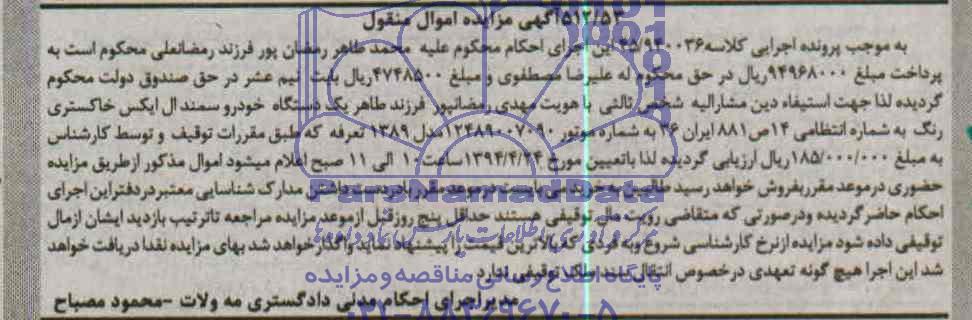 ۵۱۲/۵۳آگهی مزایده اموال منقول
به موجب پرونده اجرایی کلاسه ۳۵/۹۴۰۰۳۶ این اجرای احکام محکوم علیه محمد طاهر رمضان پور فرزند رمضانعلی محکوم است به
پرداخت مبلغ ۹۴۹۶۸۰۰۰ریال در حق محکوم له علیرضا مصطفوی و مبلغ ۴۷۴۸۵۰۰ریال بابت نیم عشر در حق صندوق دولت محکوم
گردیده لذا جهت استیفاء دین مشارالیه شخص ثالثی با هویت مهدی رمضانپور فرزند طاهر یک دستگاه خودرو سمند ال ایکس خاکستری
رنگ به شماره انتظامی ۱۴ص۸۸۱ ایران ۳۶ به شماره موتور ۱۲۴۸۹۰۰۷۰۹۰مدل ۱۳۸۹ تعرفه که طبق مقررات توقیف و توسط کارشناس
به مبلغ ۱۸۵/۰۰۰/۰۰۰ریال ارزیابی گردیده لذا باتعیین مورخ ۱۳۹۴/۴/۲۴ساعت۱۰ الی ۱۱ صبح اعلام میشود اموال مذکور ازطریق مزایده
حضوری درموعد مقرربفروش خواهد رسید طالبین به خرید می بایست درموعد مقرر بادردست داشتن مدارک شناسایی معتبردردفتراین اجرای
احکام حاضرگردیده ودرصورتی که متقاضی رویت مال توقیفی هستند حداقل پنج روزقبل ازموعد مزایده مراجعه تاترتیب بازدید ایشان ازمال
توقیفی داده شود مزایده ازنرخ کارشناسی شروع وبه فردی که بالاترین قیمت را پیشنهاد نماید واگذارخواهد شد بهای مزایده نقدا دریافت خواهد
شد این اجرا هیچ گونه تعهدی درخصوص انتقال سند ملک توقیفی ندارد
مدیراجرای احکام مدنی دادگستری مه ولات -محمود مصباح
ParsNamadData
پایگاه اطلاع رسانی مناقصه و مزایده
۰۲۱-۸۸۳۴۹۶۷۰-۵